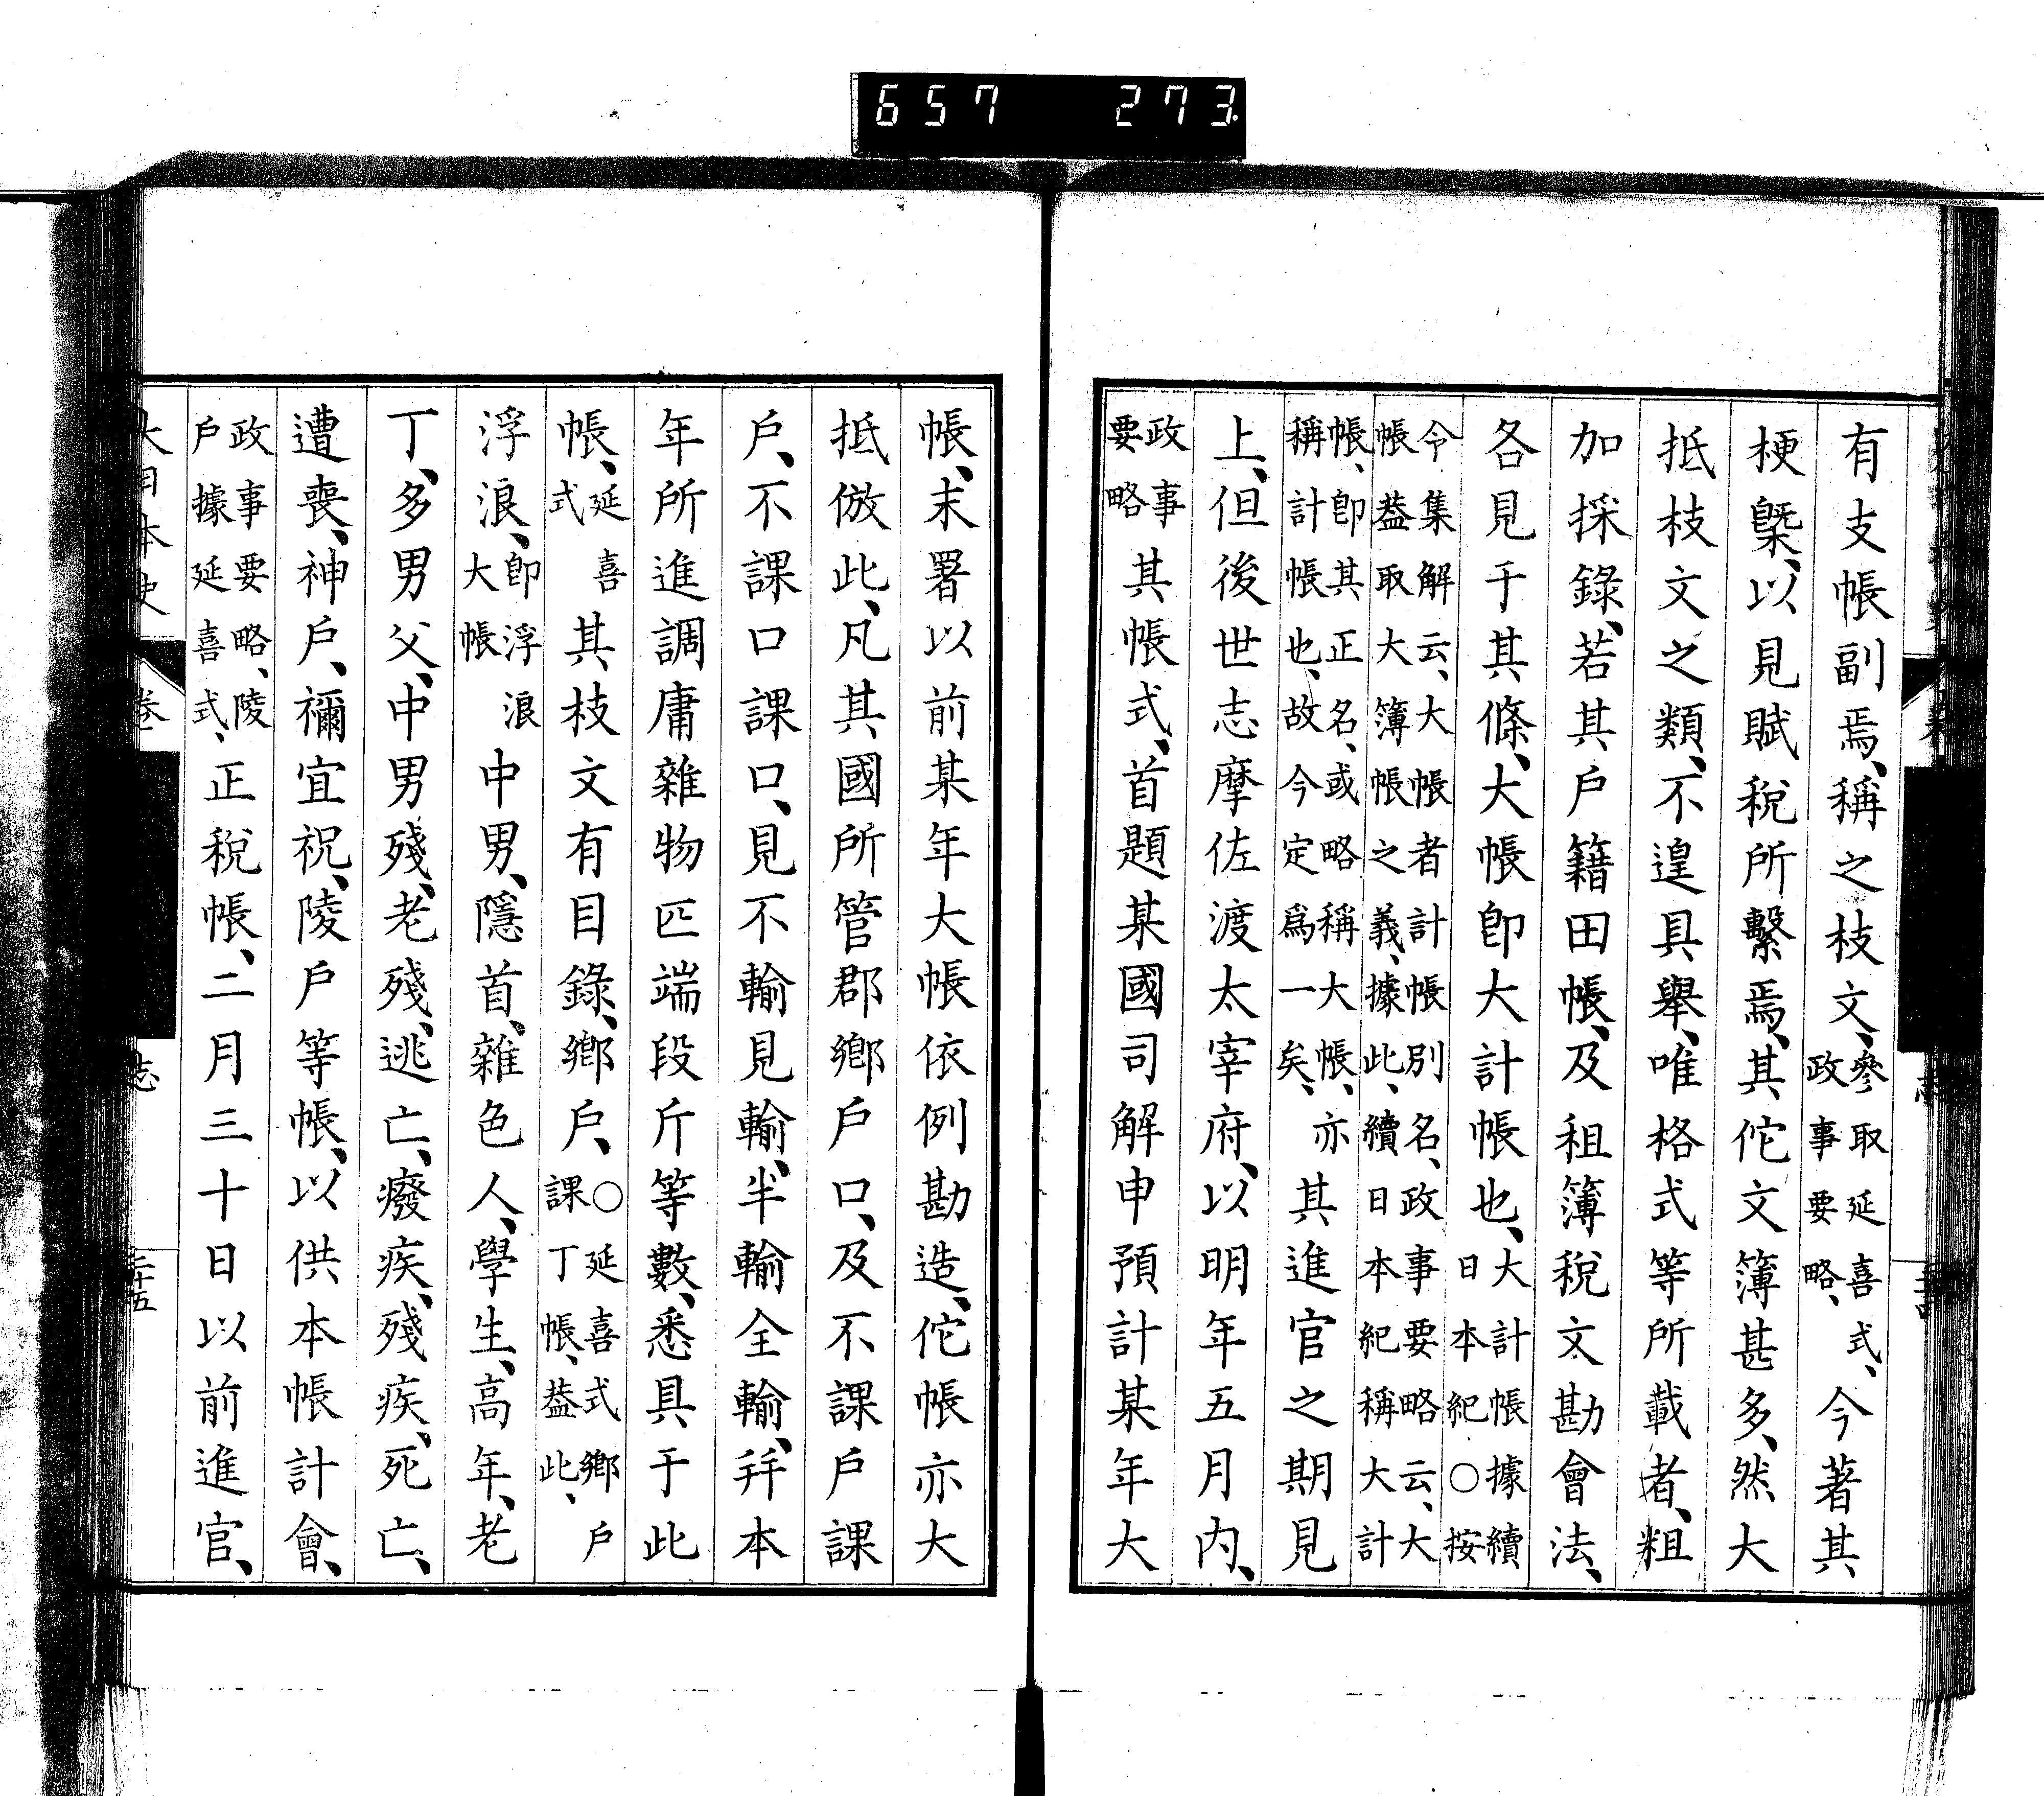 657 273
有支帳副焉、稱之枝文、參取延喜式、政事要略、今著其
梗槩、以見賦稅所繫焉、其佗文簿甚多、然大
抵枝文之類、不遑具舉、唯格式等所載者、粗
加採錄、若其戶籍田帳、及租簿稅文勘會法、
各見于其條、大帳卽大計帳也、大計帳據續日本紀○按
令集解云、大帳者計帳別名、政事要略云、大帳蓋取大簿帳之義、據此、續日本紀稱大計
帳、卽其正名、或略稱大帳、亦稱計帳也、故今定爲一矣、其進官之期見
上、但後世志摩佐渡太宰府、以明年五月內、
政事要略其帳式、首題某國司解申預計某年大
帳、末署以前某年大帳依例勘造、佗帳亦大
抵倣此、凡其國所管郡鄉戶口、及不課戶課
戶、不課口課口、見不輸見輸、半輸全輸、幷本
年所進調庸雜物匹端段斤等數、悉具于此
帳、延喜式其枝文有目錄、鄉戶、○延喜式鄉戶課丁帳、蓋此、
浮浪、卽浮浪大帳中男、隱首、雜色人、學生、高年、老
丁、多男父、中男殘、老殘、逃亡、癈疾、殘疾、死亡、
遭喪、神戶、禰宜祝、陵戶等帳、以供本帳計會、
政事要略、陵戶據延喜式、正稅帳、二月三十日以前進官、
大日本史 卷 志 二十五